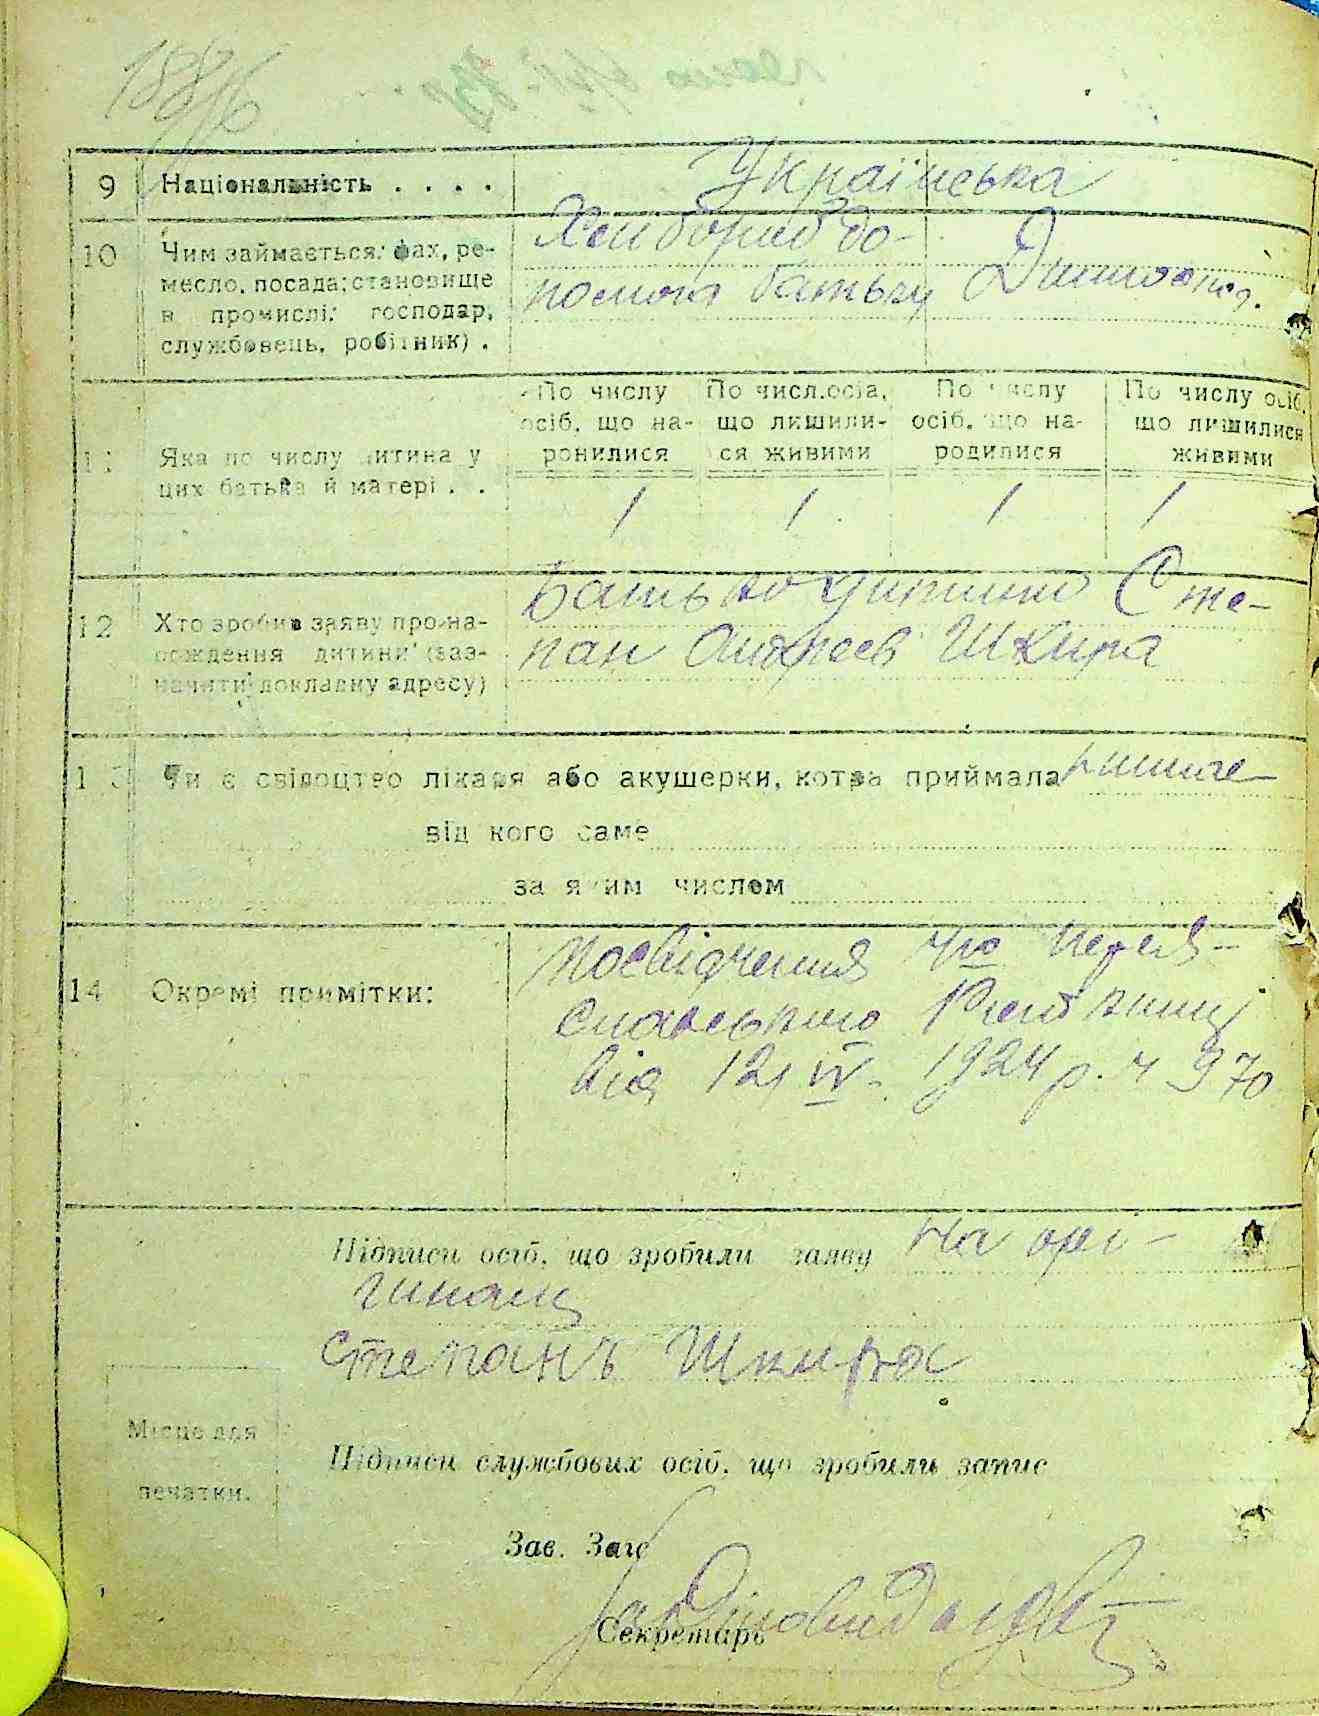 188/6
9 Національність . . . . Українська
10 Чим займається: фах, ре-
месло, посада; становище
в промислі: господар,
службовець, робітник) .
Хлібороб до-
помога батьку Домогосп.
11 Яка по числу дитина у
цих батька й матері . .
По числу
осіб, що на-
родилися
По числ. осіб,
що лишили-
ся живими
По числу
осіб, що на-
родилися
По числу осіб,
що лишилися
живими
1 1 1 1
12 Хто зробив заяву про на-
рождення дитини (заз-
начити докладну адресу)
Батько дитини Сте-
пан Андреев Шкира
13 Чи є свідоцтво лікаря або акушерки, котра приймала
від кого саме
за яким числом
14 Окремі примітки:
Посвідчення Перея-
славського
від 12/IV 1924 р. ч 970
Підписи осіб, що зробили заяву На орі-
гиналі
Степанъ Шкира
Місце для
печатки.
Підписи службових осіб, що зробили запис
Зав. Загс
Секретарь